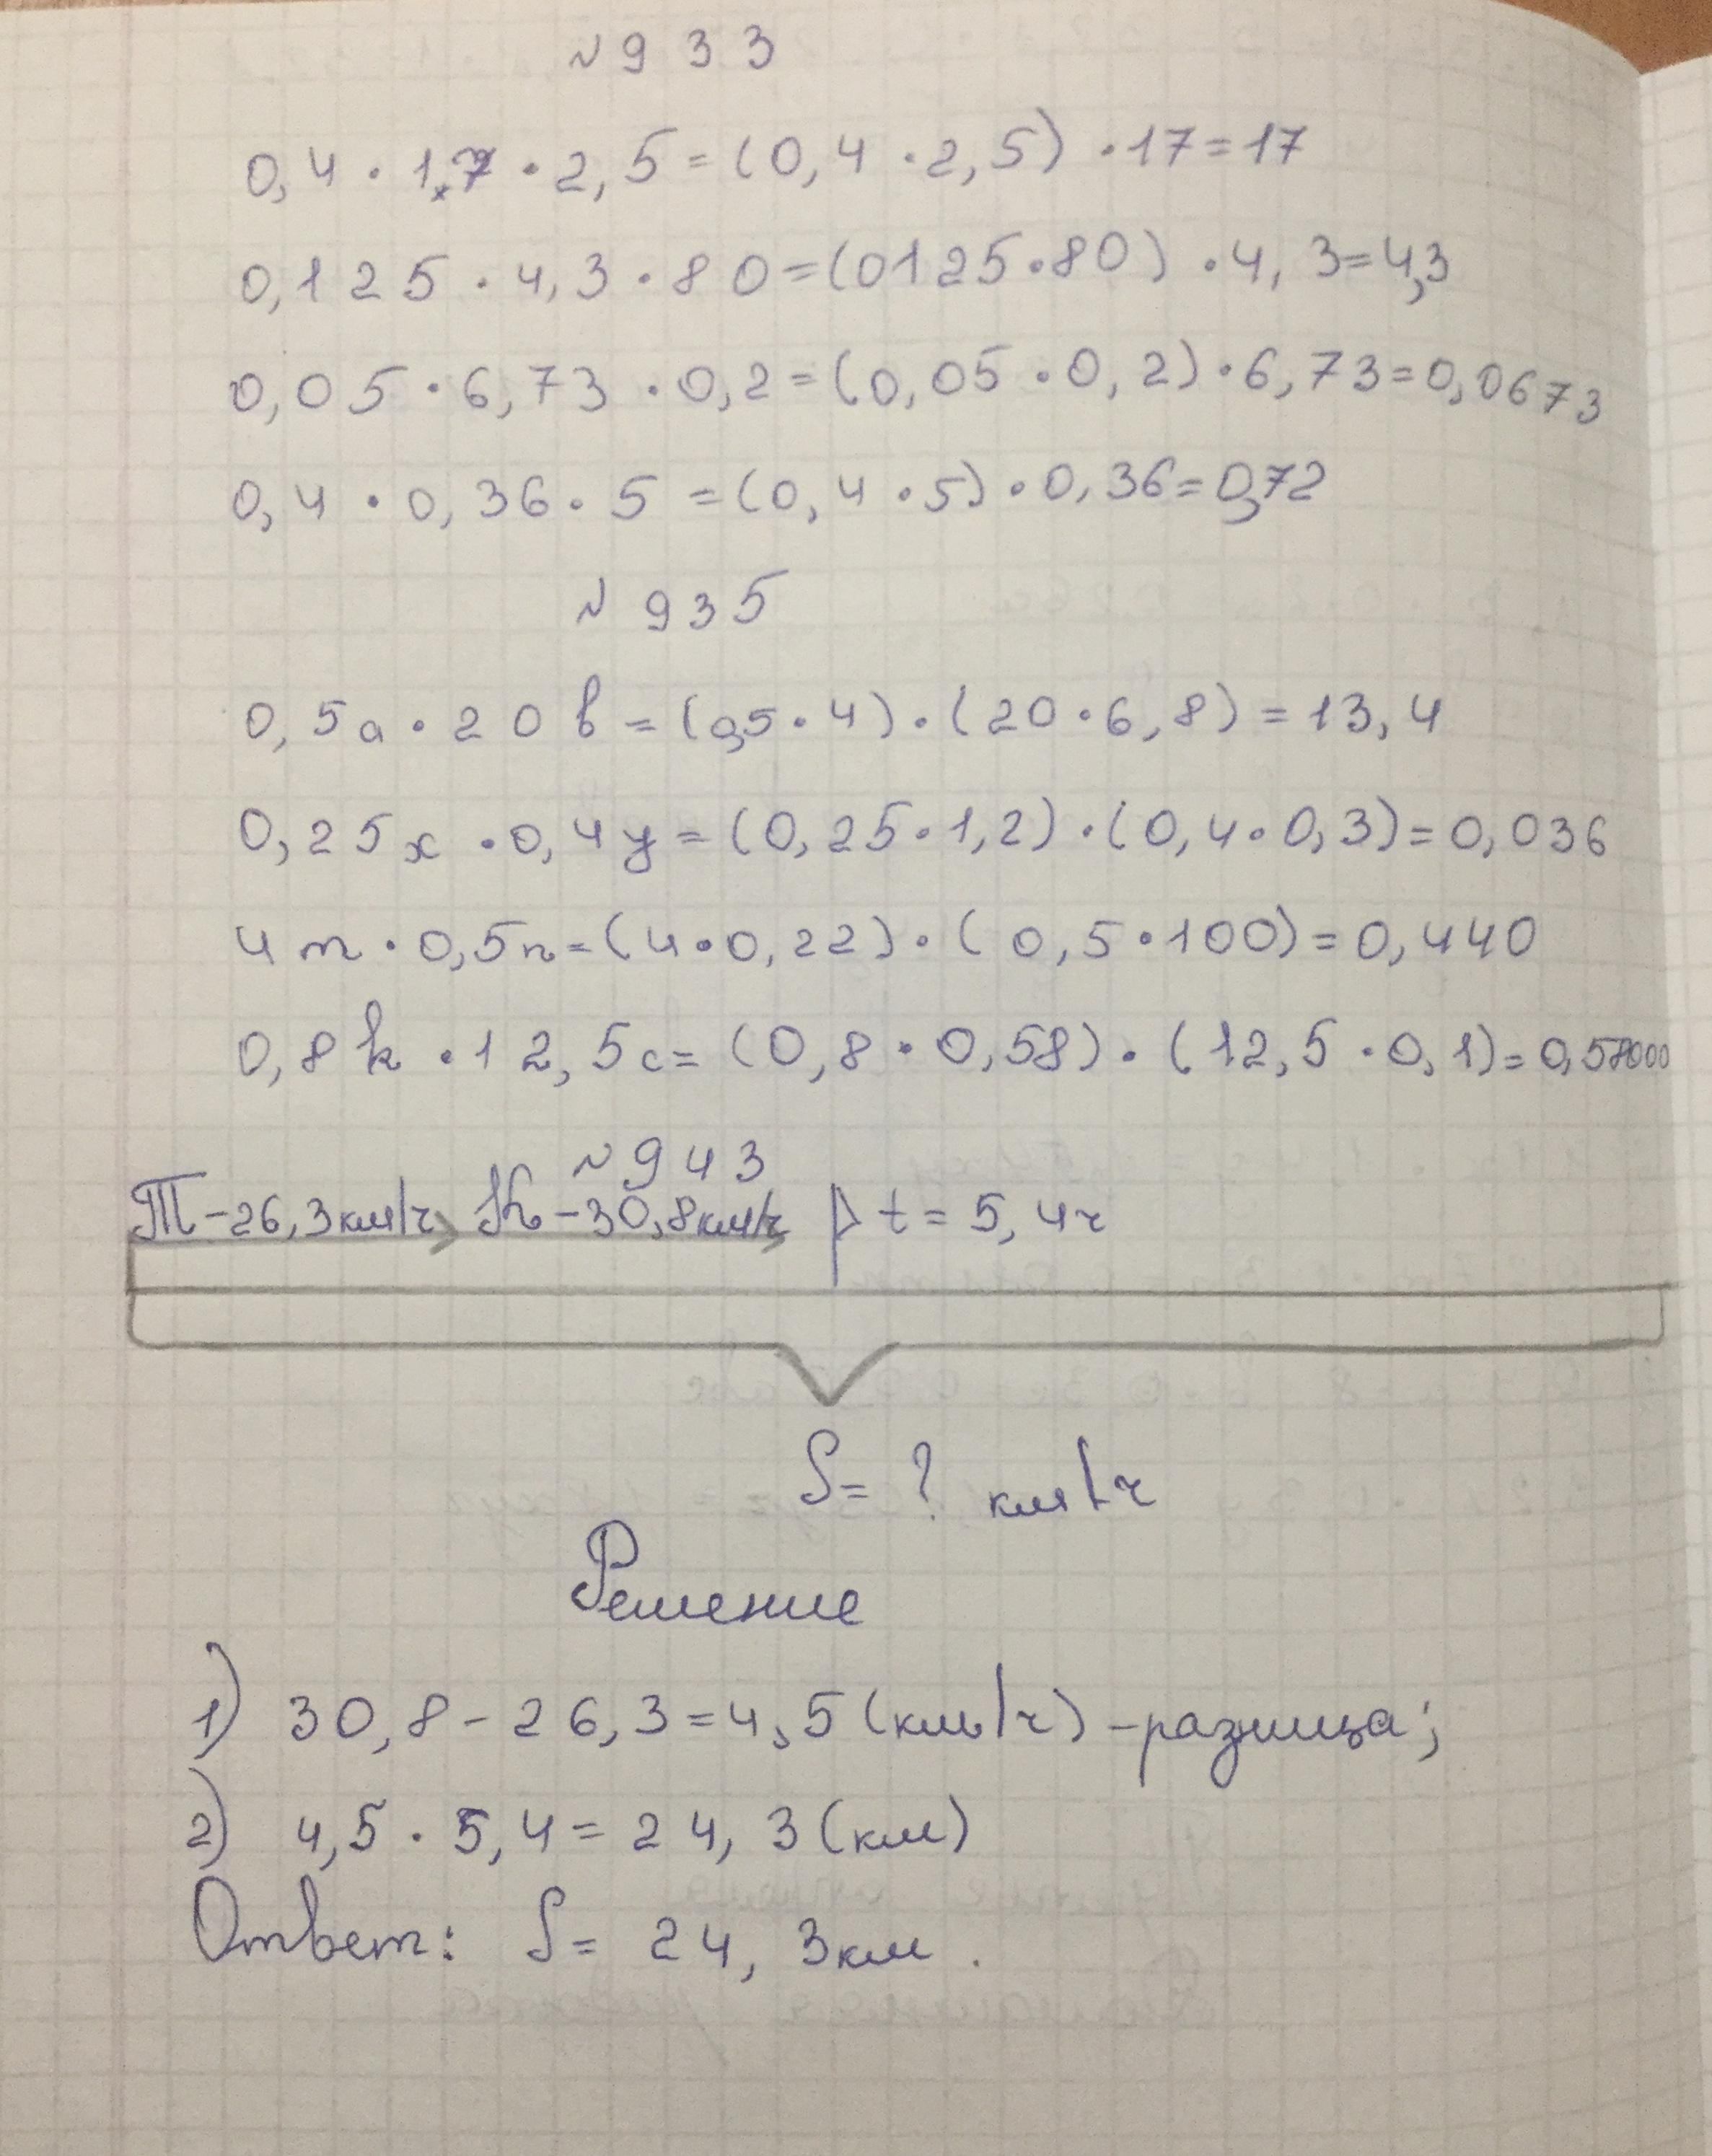 №933
0,4 · 1,7 · 2,5 = (0,4 · 2,5) · 17 = 17
0,125 · 4,3 · 80 = (0125 · 80) · 4,3 = 4,3
0,05 · 6,73 · 0,2 = (0,05 · 0,2) · 6,73 = 0,0673
0,4 · 0,36 · 5 = (0,4 · 5) · 0,36 = 0,72
№935
0,5a · 20b = (0,5 · 4) · (20 · 6,8) = 13,4
0,25x · 0,4y = (0,25 · 1,2) · (0,4 · 0,3) = 0,036
4m · 0,5n = (4 · 0,22) · (0,5 · 100) = 0,440
0,8k · 12,5c = (0,8 · 0,58) · (12,5 · 0,1) = 0,58000
№943
Т – 26,3км/ч К – 30,8км/ч t = 5,4ч
S = ? км/ч
Решение
1) 30,8 - 26,3 = 4,5 (км/ч) – разница;
2) 4,5 · 5,4 = 24,3 (км)
Ответ: S = 24,3км.